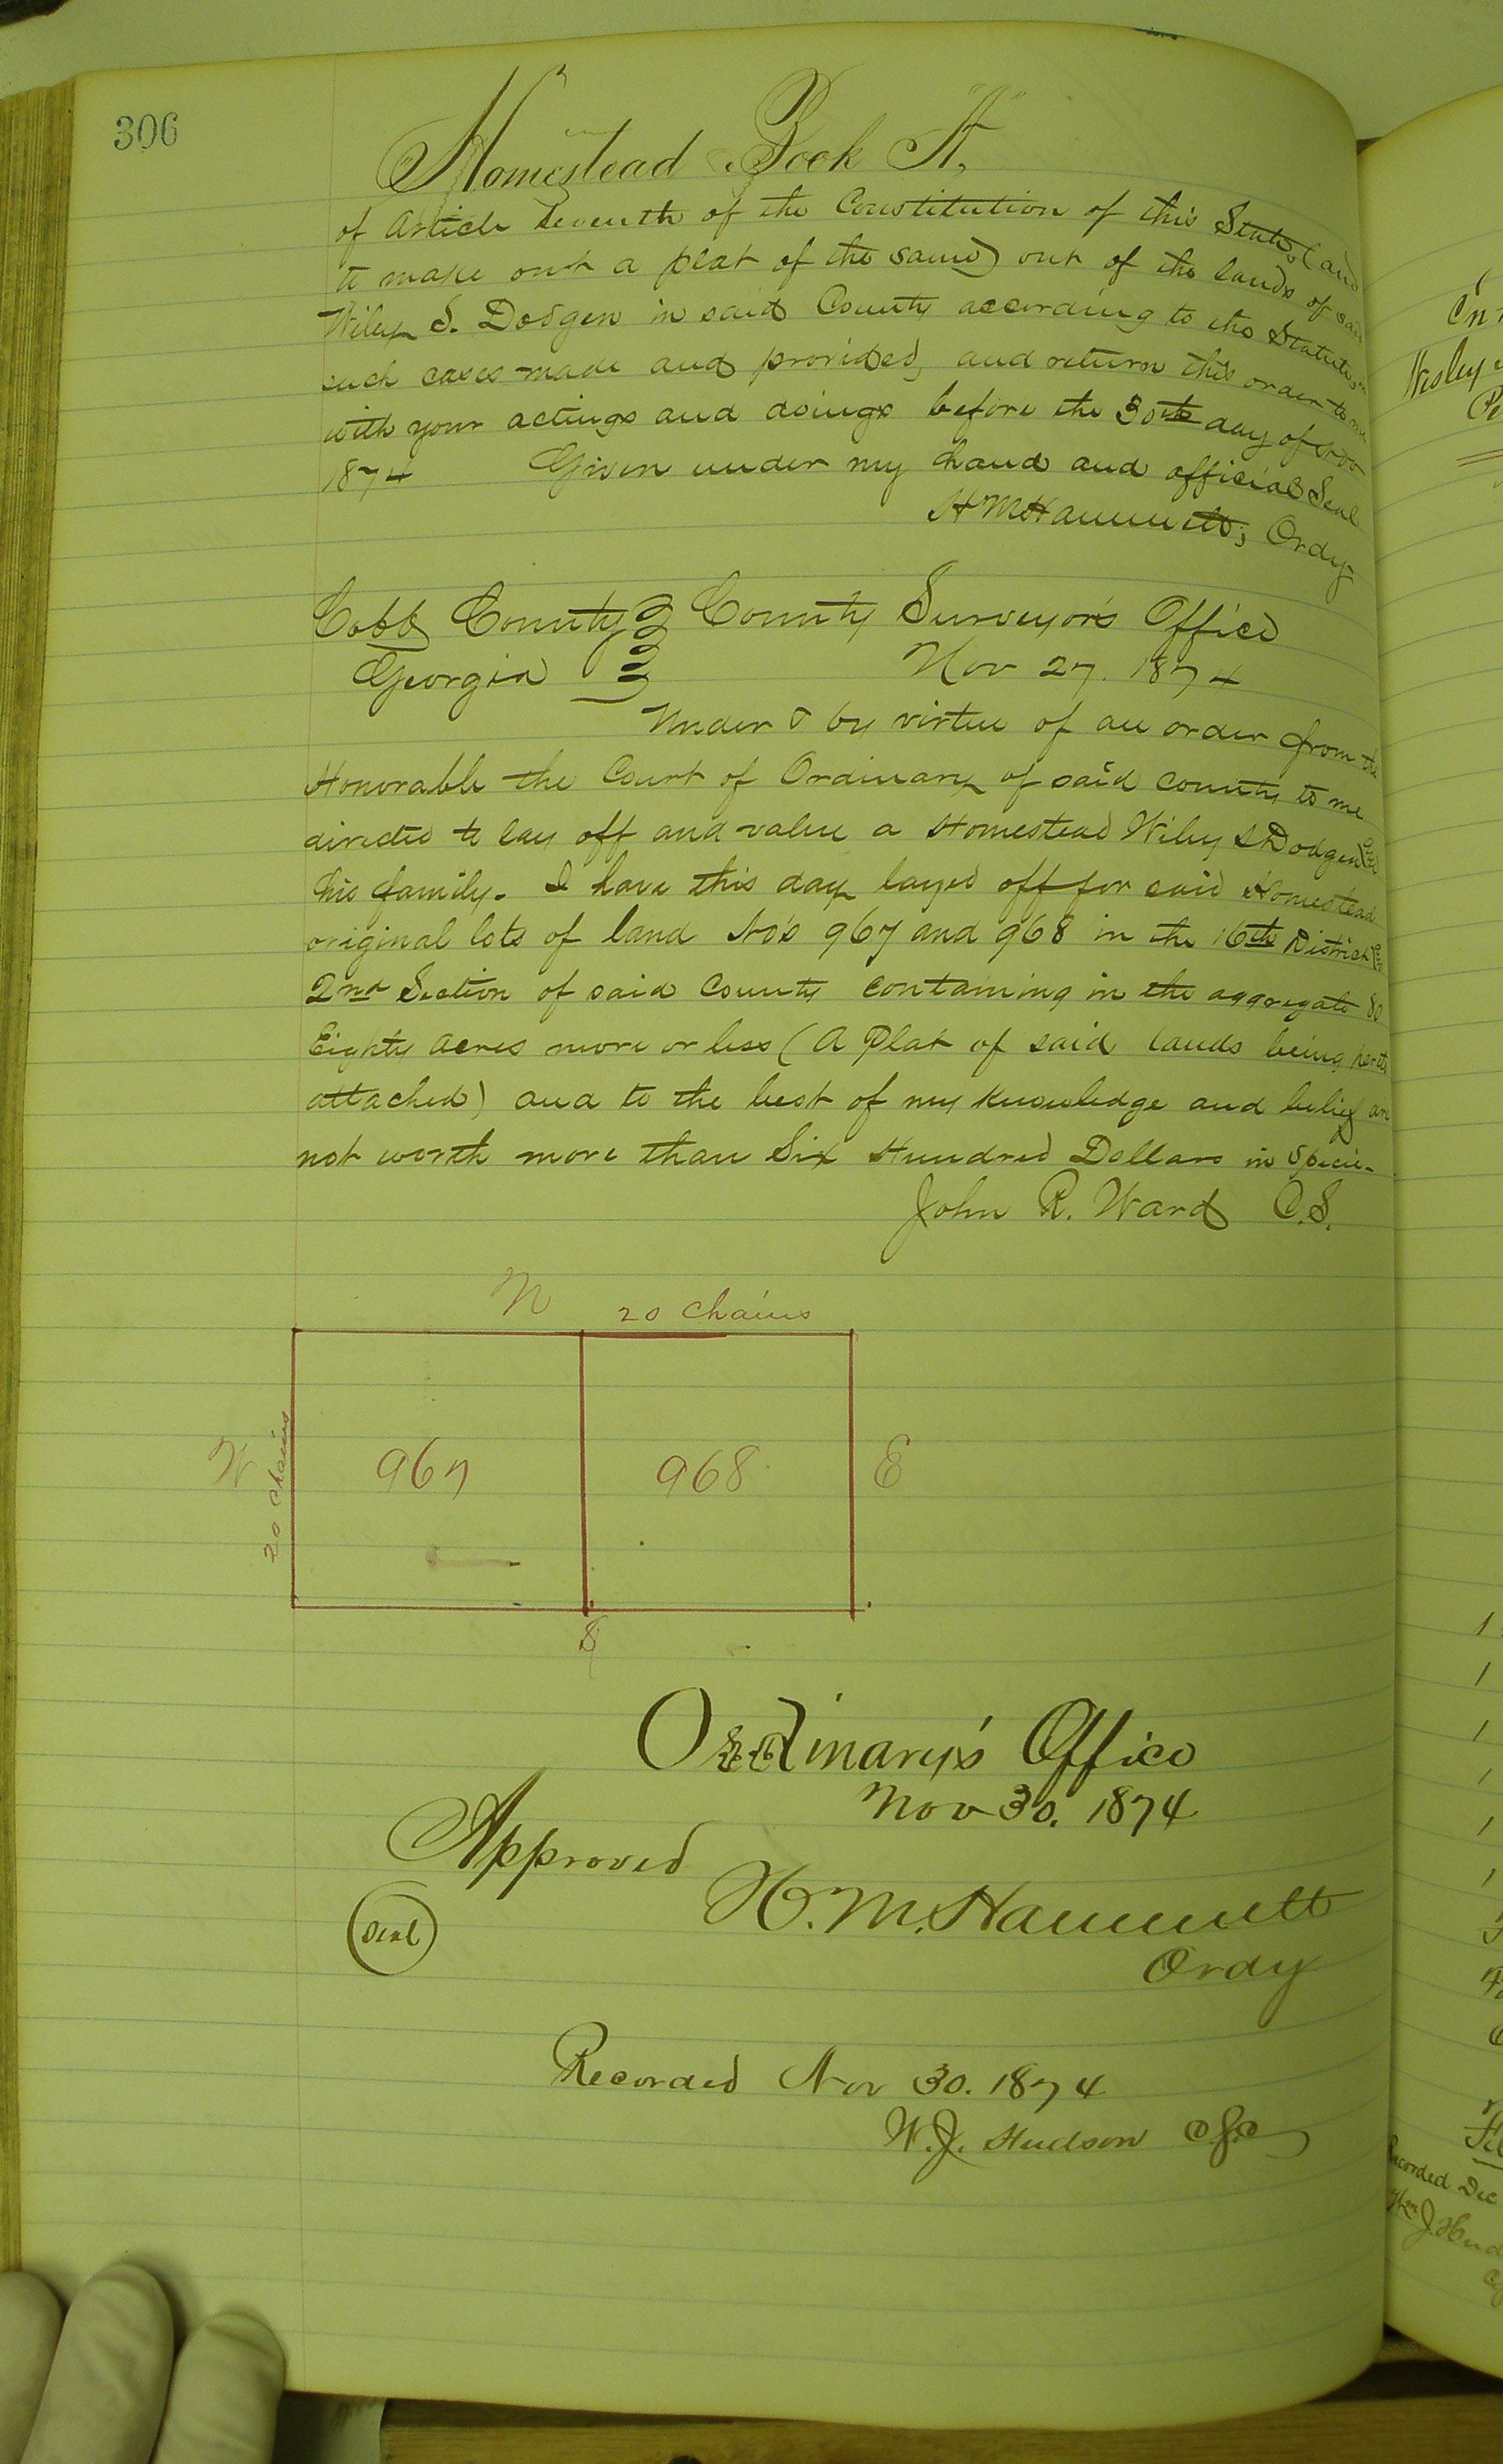 306
Homestead Book "A",
of Article Seventh of the Constitution of this State, (and
to make out a plat of the same) out of the lands of said
Wiley S. Dodgen in said County according to the Statute, in
such cases made and provided, and return this order to me
with your actings and doings before the 30th day of Nov
1874 Given under my hand and official Seal
H M Hammett, Ordy
Cobb County County Surveyor's Office
Georgia Nov 27. 1874
Under & by virtue of an order from the
Honorable the Court of Ordinary of said county to me
directed to lay off and value a Homestead Wiley S Dodgen and
his family. I have this day layed off for said Homestead
original lots of land No's 967 and 968 in the 16th District and
2nd Section of said County containing in the aggregate 80
Eighty acres more or less (A Plat of said lands being
attached) and to the best of my knowledge and belief are
not worth more than Six Hundred Dollars in Specie-
John R. Ward C.S.
N 20 Chains
W 20 Chains 967 968 E
S
Ordinary's Office
Nov 30. 1874
Approved
H. M. Hammett
Seal
Ordy
Recorded Nov 30. 1874
W. J. Hudson
Wesley
Recorded Dec
Wm J. Hud